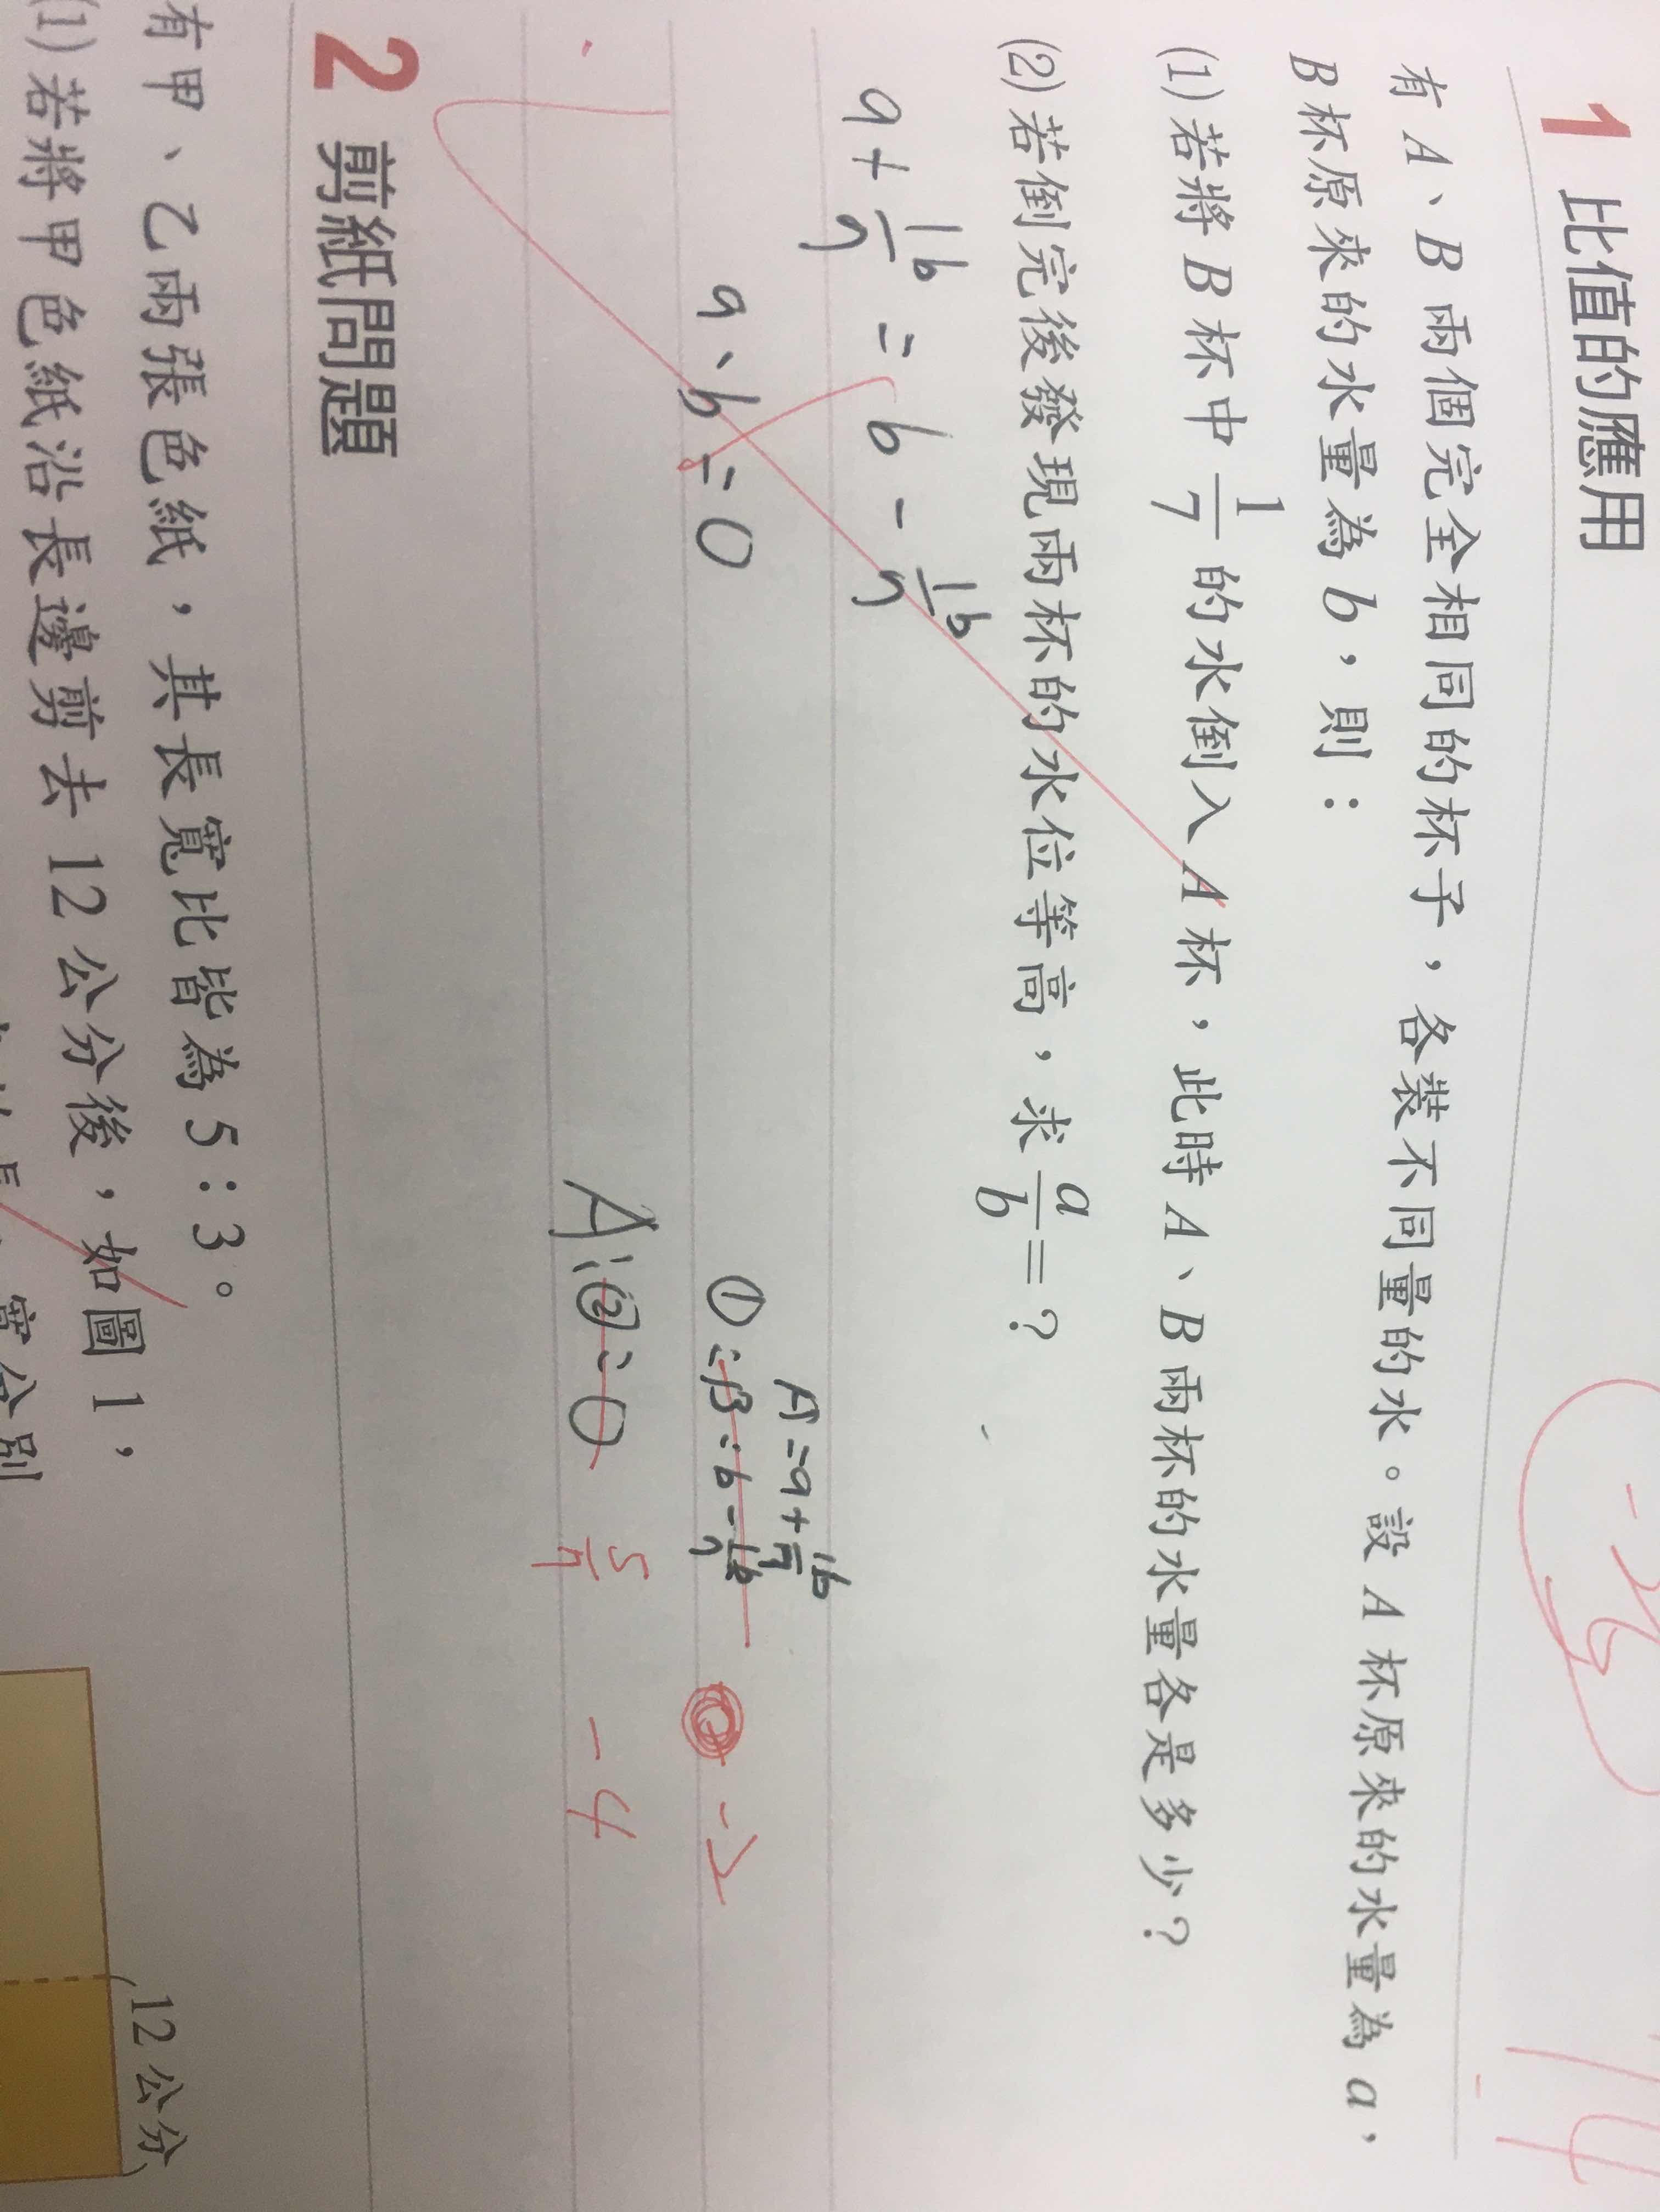 1 比值的應用
有 A、B 兩個完全相同的杯子，各裝不同量的水。設 A 杯原來的水量為 a，
B 杯原來的水量為 b，則：
(1) 若將 B 杯中 1/7 的水倒入 A 杯，此時 A、B 兩杯的水量各是多少？
(2) 若倒完後發現兩杯的水位等高，求 a/b = ？
a + 1/7 b = b - 1/7 b
a、b = 0
A = a + 1/7 b
①: B: b - 1/7 b -2
A: ②: 0 5/7 -4
14
2 剪紙問題
有甲、乙兩張色紙，其長寬比皆為 5：3。
(1) 若將甲色紙沿長邊剪去 12 公分後，如圖 1，
12 公分